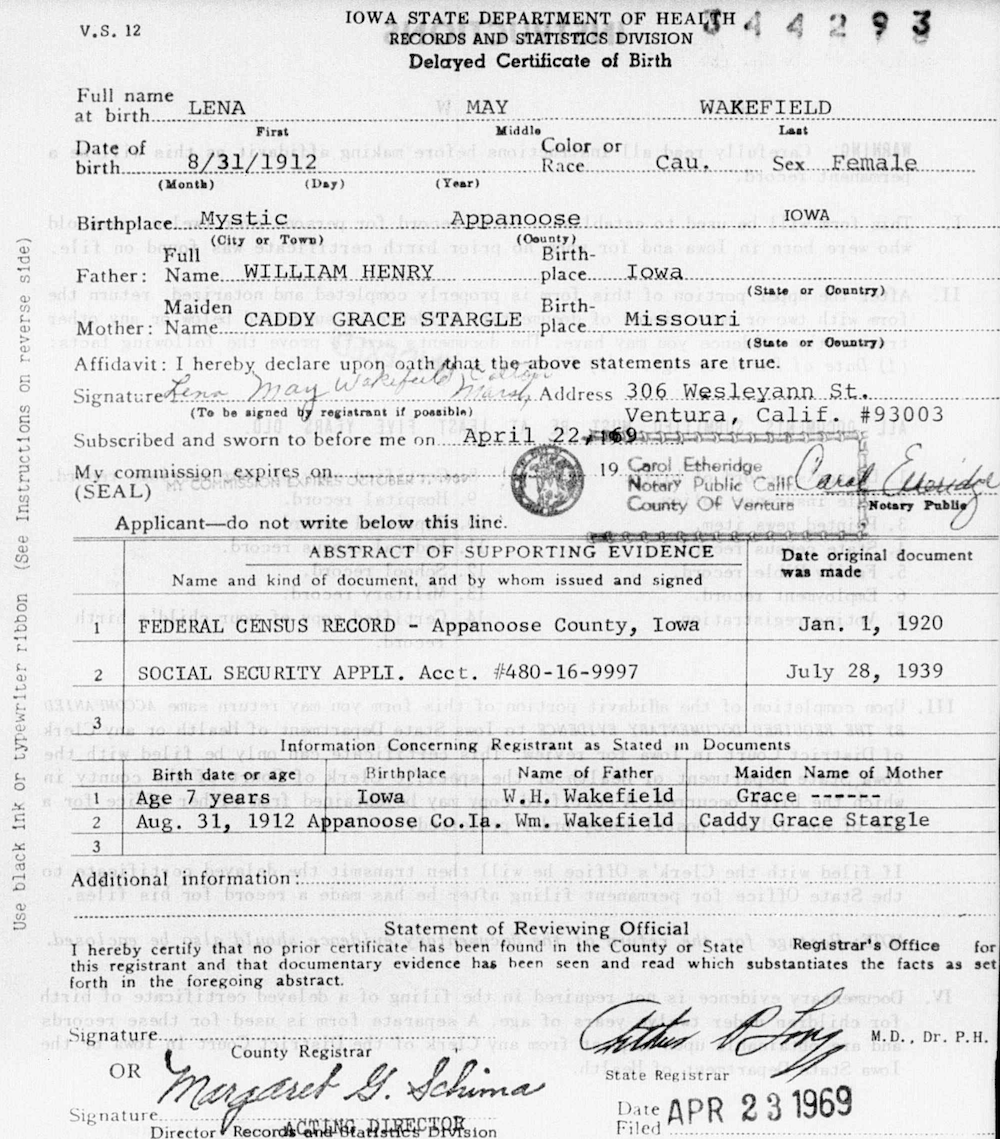 V.S. 12
IOWA STATE DEPARTMENT OF HEALTH
344293
RECORDS AND STATISTICS DIVISION
Delayed Certificate of Birth
Full name
at birth LENA MAY WAKEFIELD
First Middle Last
Date of
birth 8/31/1912 Color or Race Cau. Sex Female
(Month) (Day) (Year)
Birthplace Mystic Appanoose IOWA
(City or Town) (County)
Father: Full Name WILLIAM HENRY Birthplace Iowa
(State or Country)
Mother: Maiden Name CADDY GRACE STARGLE Birthplace Missouri
(State or Country)
Affidavit: I hereby declare upon oath that the above statements are true.
Signature Lena May Wakefield Marsh Address 306 Wesleyann St.
(To be signed by registrant if possible) Ventura, Calif. #93003
Subscribed and sworn to before me on April 22, 169
My commission expires on 19
MY COMMISSION EXPIRES OCTOBER
(SEAL)
Carol Etheridge
Notary Public Calif
County Of Ventura
Carol Etheridge
Notary Public
Applicant—do not write below this line.
ABSTRACT OF SUPPORTING EVIDENCE
Name and kind of document, and by whom issued and signed
Date original document
was made
1 FEDERAL CENSUS RECORD - Appanoose County, Iowa Jan. 1, 1920
2 SOCIAL SECURITY APPLI. Acct. #480-16-9997 July 28, 1939
3
Information Concerning Registrant as Stated in Documents
Birth date or age Birthplace Name of Father Maiden Name of Mother
1 Age 7 years Iowa W.H. Wakefield Grace ------
2 Aug. 31, 1912 Appanoose Co.Ia. Wm. Wakefield Caddy Grace Stargle
3
Additional information:
Statement of Reviewing Official
I hereby certify that no prior certificate has been found in the County or State Registrar's Office for
this registrant and that documentary evidence has been seen and read which substantiates the facts as set
forth in the foregoing abstract.
Signature
County Registrar
M.D., Dr. P.H.
State Registrar
OR
Signature Margaret G. Schima
ACTING DIRECTOR
Director Records and Statistics Division
Date
Filed APR 23 1969
Use black ink or typewriter ribbon (See Instructions on reverse side)